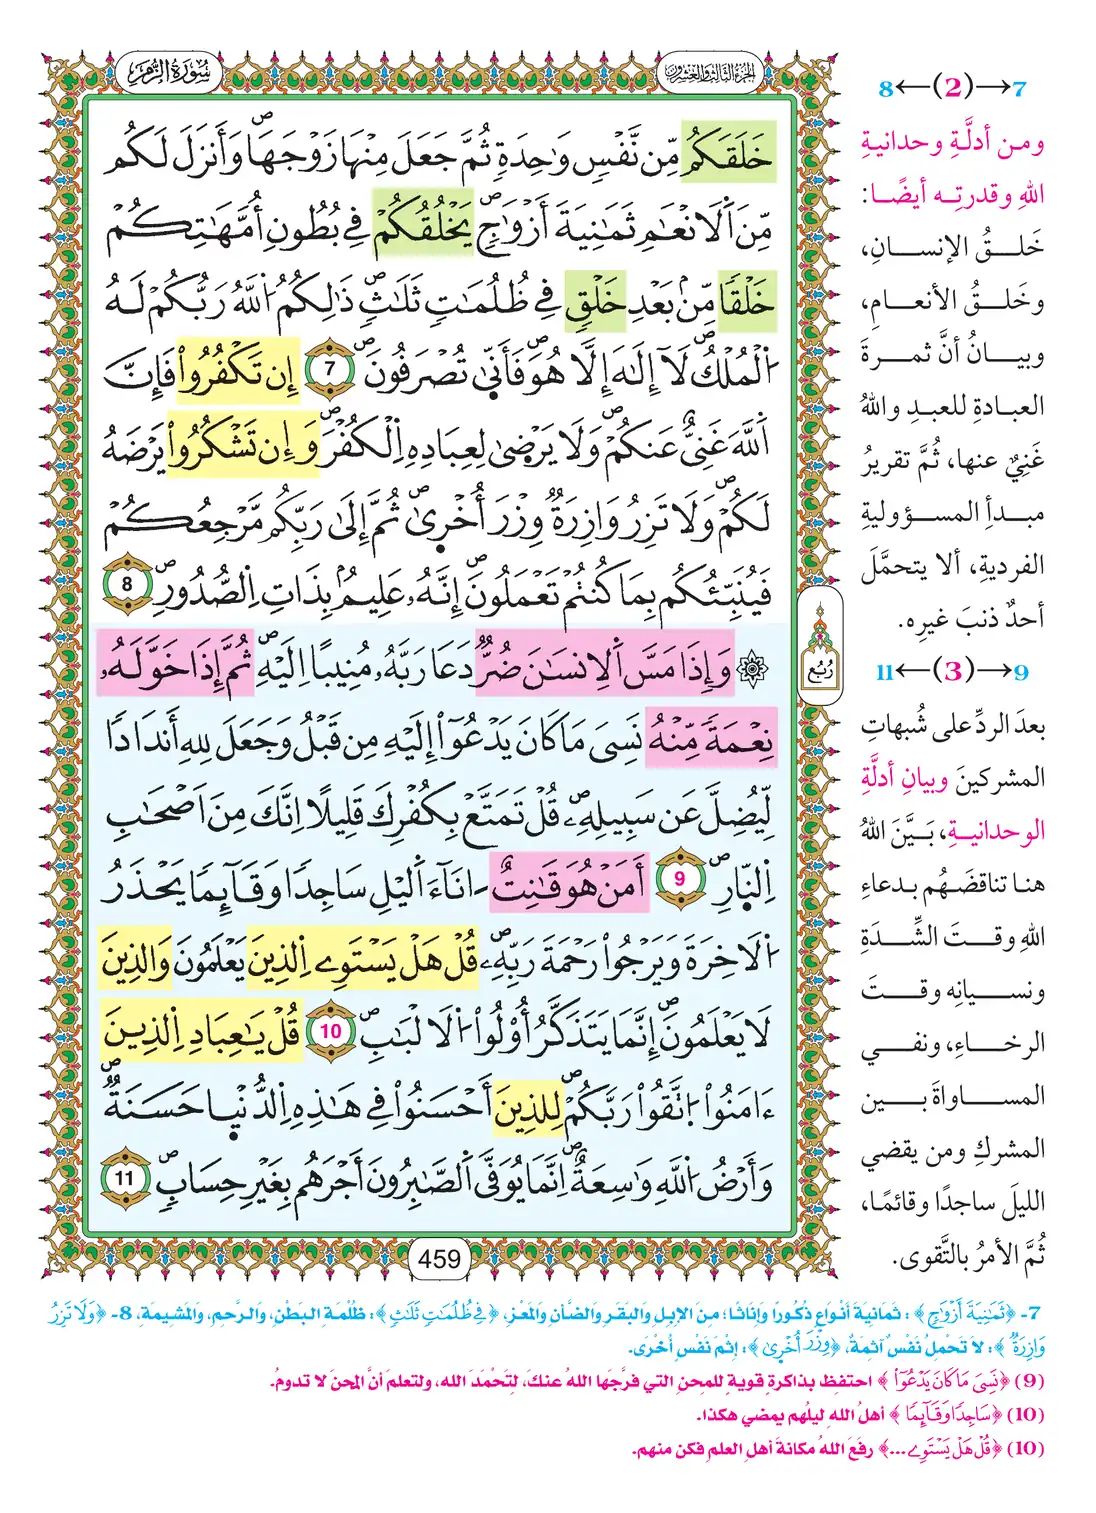 سُورَةُ الزُّمَرِ
الجزء الثالث والعشرون
خَلَقَكُم مِّن نَّفْسٖ وَٰحِدَةٖ ثُمَّ جَعَلَ مِنْهَا زَوْجَهَاۖ وَأَنزَلَ لَكُم
مِّنَ اَ۬لَانْعَٰمِ ثَمَٰنِيَةَ أَزْوَٰجٖۖ يَخْلُقُكُمْ فِے بُطُونِ أُمَّهَٰتِكُمْ
خَلْقاٗ مِّنۢ بَعْدِ خَلْقٖ فِے ظُلُمَٰتٖ ثَلَٰثٖۖ ذَٰلِكُمُ اُ۬للَّهُ رَبُّكُمْ لَهُ
اُ۬لْمُلْكُۖ لَآ إِلَٰهَ إِلَّا هُوَۖ فَأَنّ۪يٰ تُصْرَفُونَۖ 7 إِن تَكْفُرُواْ فَإِنَّ
اَ۬للَّهَ غَنِيٌّ عَنكُمْۖ وَلَا يَرْض۪يٰ لِعِبَادِهِ اِ۬لْكُفْرَۖ وَإِن تَشْكُرُواْ يَرْضَهُ
لَكُمْۖ وَلَا تَزِرُ وَازِرَةٞ وِزْرَ أُخْر۪يٰۖ ثُمَّ إِلَىٰ رَبِّكُم مَّرْجِعُكُمْ
فَيُنَبِّئُكُم بِمَا كُنتُمْ تَعْمَلُونَۖ إِنَّهُۥ عَلِيمُۢ بِذَاتِ اِ۬لصُّدُورِۖ 8
۞ وَإِذَا مَسَّ اَ۬لِانسَٰنَ ضُرّٞ دَعَا رَبَّهُۥ مُنِيباً اِلَيْهِۖ ثُمَّ إِذَا خَوَّلَهُۥ
نِعْمَةٗ مِّنْهُ نَسِيَ مَا كَانَ يَدْعُوٓاْ إِلَيْهِ مِن قَبْلُ وَجَعَلَ لِلهِ أَندَاداٗ
لِّيُضِلَّ عَن سَبِيلِهِۦۖ قُلْ تَمَتَّعْ بِكُفْرِكَ قَلِيلاً اِنَّكَ مِنَ اَصْحَٰبِ
اِ۬لنّ۪ارِۖ 9 أَمَنْ هُوَ قَٰنِتٌ اٰنَآءَ اَ۬ليْلِ سَاجِداٗ وَقَآئِماٗ يَحْذَرُ
اُ۬لَاخِرَةَ وَيَرْجُواْ رَحْمَةَ رَبِّهِۦۖ قُلْ هَلْ يَسْتَوِے اِ۬لذِينَ يَعْلَمُونَ وَالذِينَ
لَا يَعْلَمُونَۖ إِنَّمَا يَتَذَكَّرُ أُوْلُواْ اُ۬لَالْبَٰبِۖ 10 قُلْ يَٰعِبَادِ اِ۬لذِينَ
ءَامَنُواْ اُ۪تَّقُواْ رَبَّكُمْۖ لِلذِينَ أَحْسَنُواْ فِے هَٰذِهِ اِ۬لدُّنْي۪ا حَسَنَةٞۖ
وَأَرْضُ اُ۬للَّهِ وَٰسِعَةٌۖ اِنَّمَا يُوَفَّى اَ۬لصَّٰبِرُونَ أَجْرَهُم بِغَيْرِ حِسَابٖۖ 11
رُبُع
459
8←(2)→7
ومن أدلَّةِ وحدانيةِ
اللهِ وقدرتِه أيضًا:
خَلقُ الإنسانِ،
وخَلقُ الأنعامِ،
وبيانُ أنَّ ثمرةَ
العبادةِ للعبدِ واللهُ
غَنِيٌ عنها، ثُمَّ تقريرُ
مبدأِ المسؤوليةِ
الفرديةِ، ألا يتحمَّلَ
أحدٌ ذنبَ غيرِه.
11←(3)→9
بعدَ الردِّ على شُبهاتِ
المشركينَ وبيانِ أدلَّةِ
الوحدانيةِ، بَيَّنَ اللهُ
هنا تناقضَهُم بدعاءِ
اللهِ وقتَ الشِّدَةِ
ونسيانِه وقتَ
الرخاءِ، ونفي
المساواةَ بين
المشركِ ومن يقضي
الليلَ ساجدًا وقائمًا،
ثُمَّ الأمرُ بالتَّقوى.
7- ﴿ثَمَٰنِيَةَ أَزْوَٰجٖ﴾: ثمانيةَ أنواعٍ ذُكُورًا وإناثًا؛ منَ الإبلِ والبقرِ والضَّأنِ والمَعْزِ، ﴿فِے ظُلُمَٰتٖ ثَلَٰثٖ﴾: ظُلْمَةِ البَطْنِ، والرَّحِمِ، والمَشِيمَةِ، 8- ﴿وَلَا تَزِرُ
وَازِرَةٞ﴾: لا تَحْمِلُ نَفْسٌ آثمةٌ، ﴿وِزْرَ أُخْر۪يٰ﴾: إثْمَ نَفْسٍ أُخْرَى.
(9) ﴿نَسِيَ مَا كَانَ يَدْعُوٓاْ﴾ احتفِظ بذاكرةٍ قويةٍ للمحنِ التي فرَّجَها اللهُ عنكَ، لِتَحْمَدَ الله، ولتعلمَ أنَّ المحنَ لا تدومُ.
(10) ﴿سَاجِداٗ وَقَآئِماٗ﴾ أهلُ اللهِ ليلُهم يمضي هكذا.
(10) ﴿قُلْ هَلْ يَسْتَوِے...﴾ رفعَ اللهُ مكانةَ أهلِ العلمِ فكن منهم.